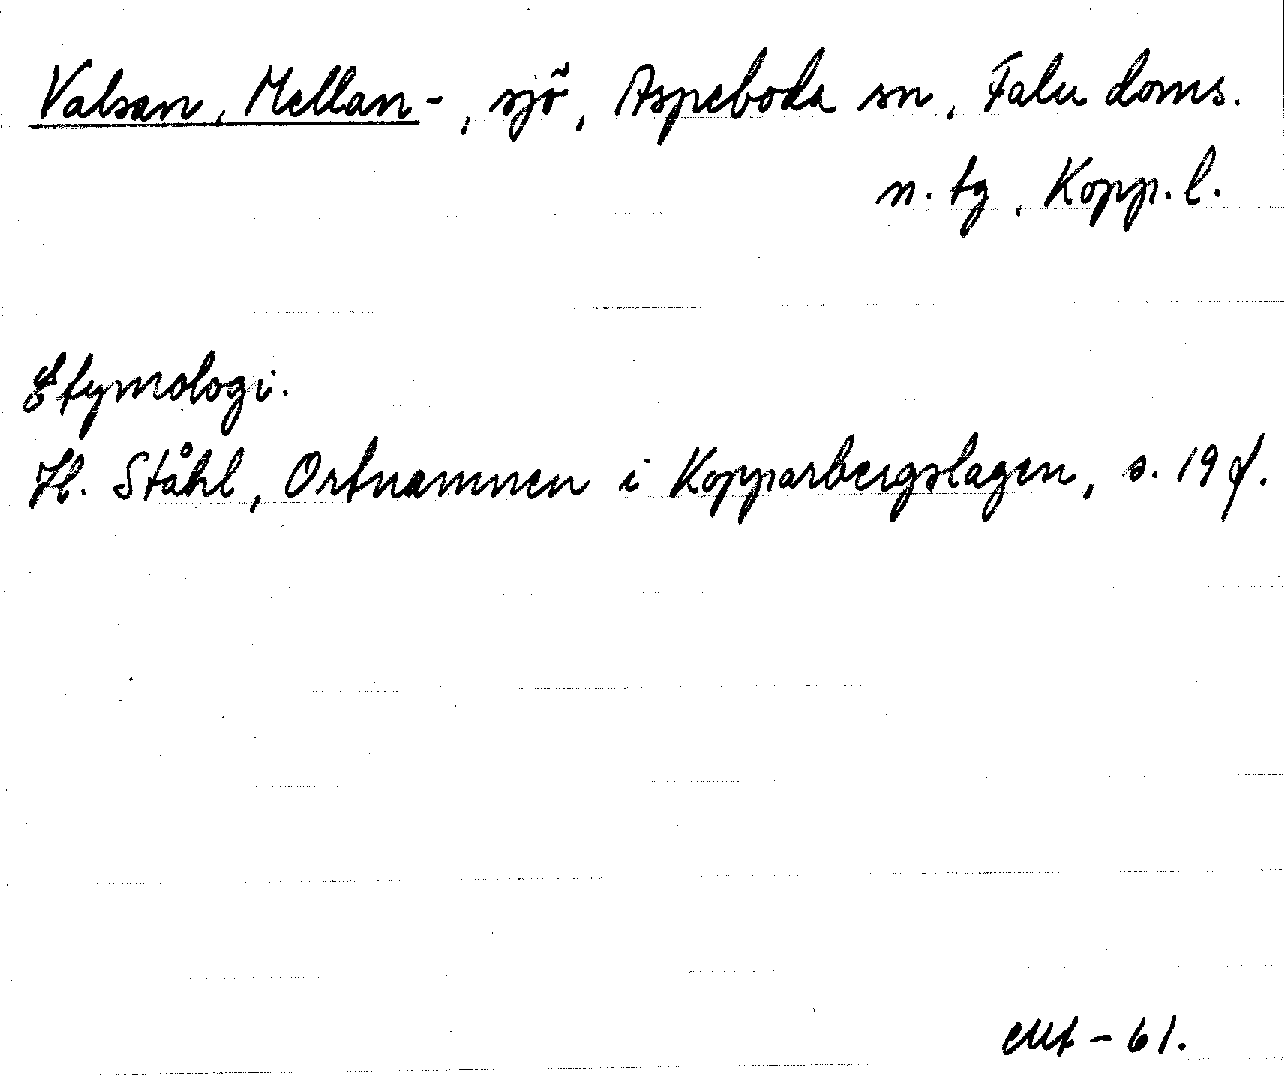 Valsan, Mellan-, sjö, Aspeboda sn, Falu doms.
n. tg, Kopp. l.
Etymologi.
H. Ståhl, Ortnamnen i Kopparbergslagen, s. 19 f.
-61.